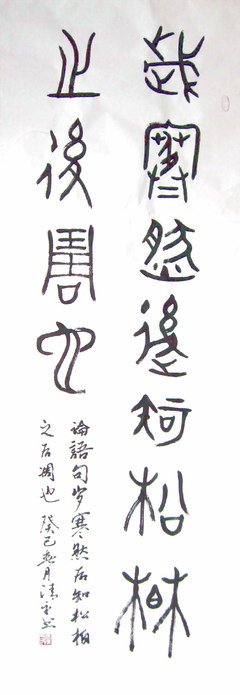 歲寒然後知松柏
之後周也
論語句岁寒然后知松柏
之后凋也 癸巳春月清书